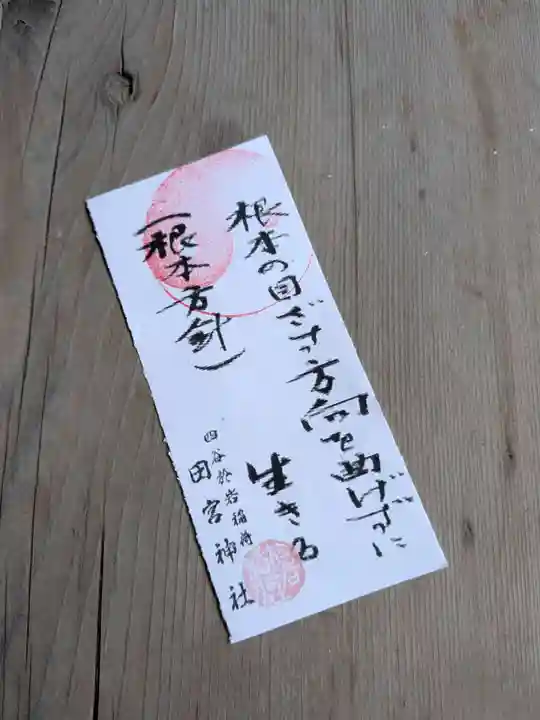 根本の目ざす方向を曲げずに
生きる
(根本方針)
四谷於岩稲荷
田宮神社